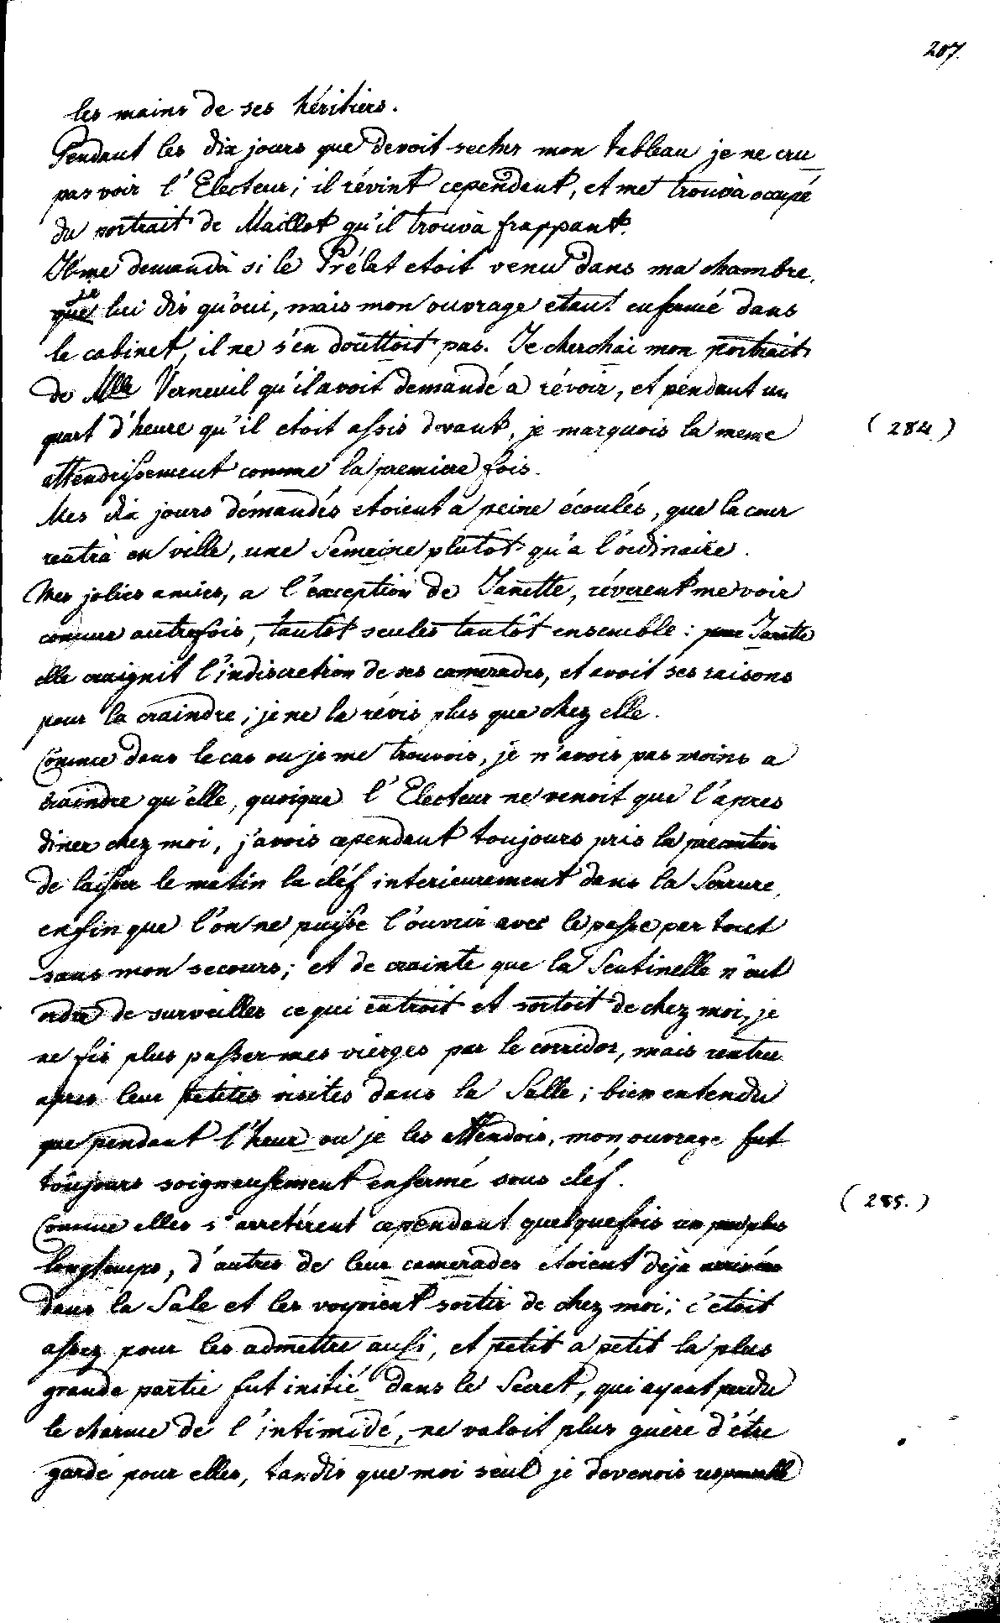 207.
les mains de ses héritiers.
Pendant les dix jours que devoit secher mon tableau je ne cru
pas voir l'Electeur; il révint cependent, et me trouvà occupé
du portrait de Maillot qu'il trouva frappant.
Il me demandà si le Prélat etoit venu dans ma chambre.
je lui dis qu'oui, mais mon ouvrage etant enfermé dans
le cabinet, il ne s'en douttoit pas. Je cherchai mon portrait
de Mlle Verneuil qu'il avoit demandé a révoir, et pendant un
quart d'heure qu'il etoit assis devant, je marquois la meme
(284)
attendrissement comme la premiere fois.
Mes dix jours démandés etoient a peine écoulés, que la cour
rentrà en ville, une Semeine plutot qu'a l'ordinaire.
Mes jolies amies, a l'éxception de Janette, révérent me voir
comme autrefois, tantôt seules tantôt ensemble: pour Janette
elle craignit l'indiscretion de ses camerades, et avoit ses raisons
pour la craindre; je ne la révis plus que chez elle.
Comme dans le cas ou je me trouvois, je n'avois pas moins a
craindre qu'elle, quoique l'Electeur ne venoit que l'apres
diner chez moi, j'avois cependent toujours pris la precaution
de laisser le matin la cléf interieurement dans la Serrure,
enfin que l'on ne puisse l'ouvrir avec le passe per tout
sans mon secours; et de crainte que la Sentinelle n'eut
ordre de surveiller ce qui entroit et sortoit de chez moi, je
ne fis plus passer mes vierges par le corridor, mais rentrer
apres leur petites visites dans la Salle; bien entendu
que pendant l'heur ou je les attendois, mon ouvrage fut
toujours soigneusement enfermé sous cléf.
(285.)
Comme elles s'arretérent cependant quelquefois un peu plus
longtemps, d'autres de leur camerades étoient déja arrivées
dans la Sale et les voyoient sortir de chez moi; c'etoit
assez pour les admettre aussi, et petit a petit la plus
grande partie fut initié dans le Secret, qui ayant perdu
le charme de l'intimidé, ne valoit plus guère d'étre
gardé pour elles, tandis que moi seul je devenois responsable